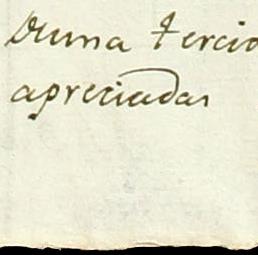 Duma tercio
apreciadas